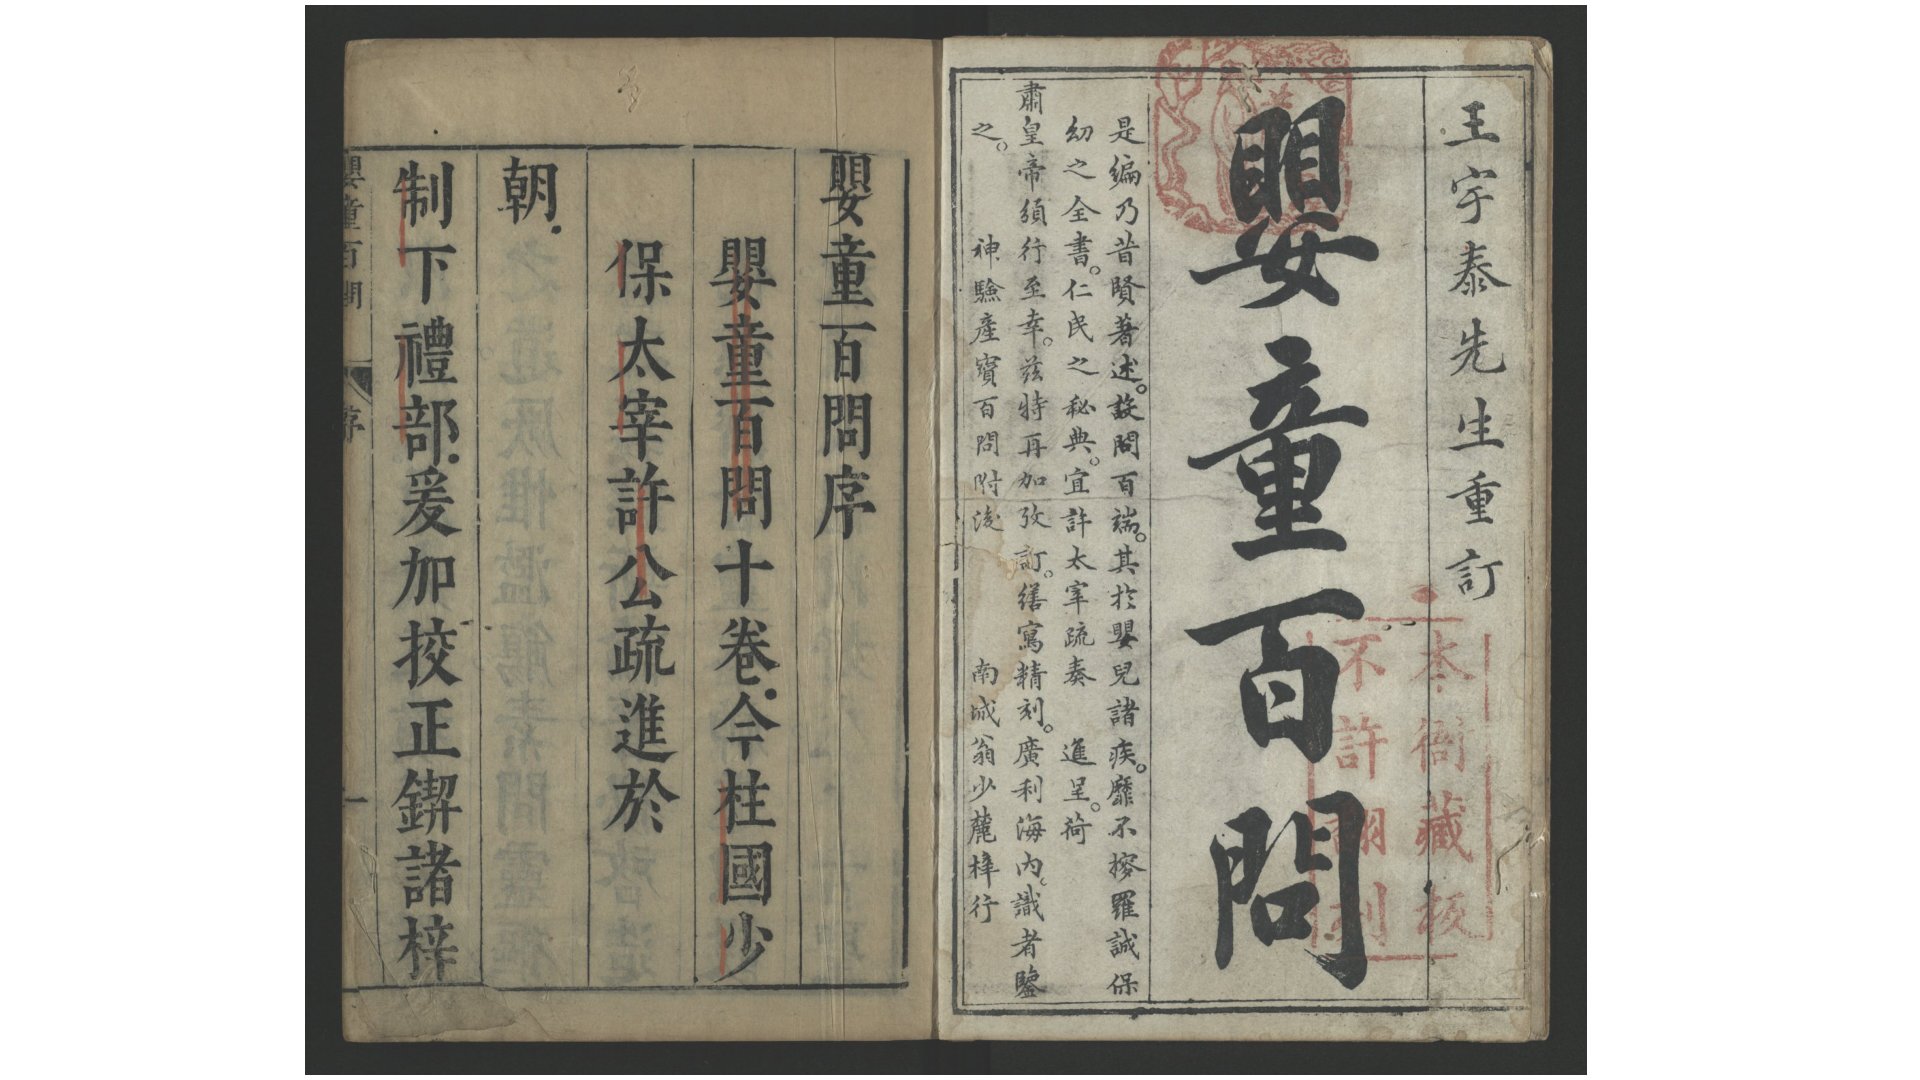 王宇泰先生重訂
嬰童百問
本衙藏板
不許翻刻
是編乃昔賢著述。設問百端。其於嬰兒諸疾。靡不搜羅誠保
幼之全書。仁民之秘典。宜許太宰疏奏　進呈。荷
肅皇帝頒行至幸。茲特再加攷訂。繕寫精刻。廣利海內。識者鑒
之。　神驗產寶百問附後　南城翁少麓梓行
嬰童百問序
嬰童百問十卷.今柱國少
保太宰許公疏進於
朝.
制下禮部.爰加挍正鍥諸梓
嬰童百問　序　一